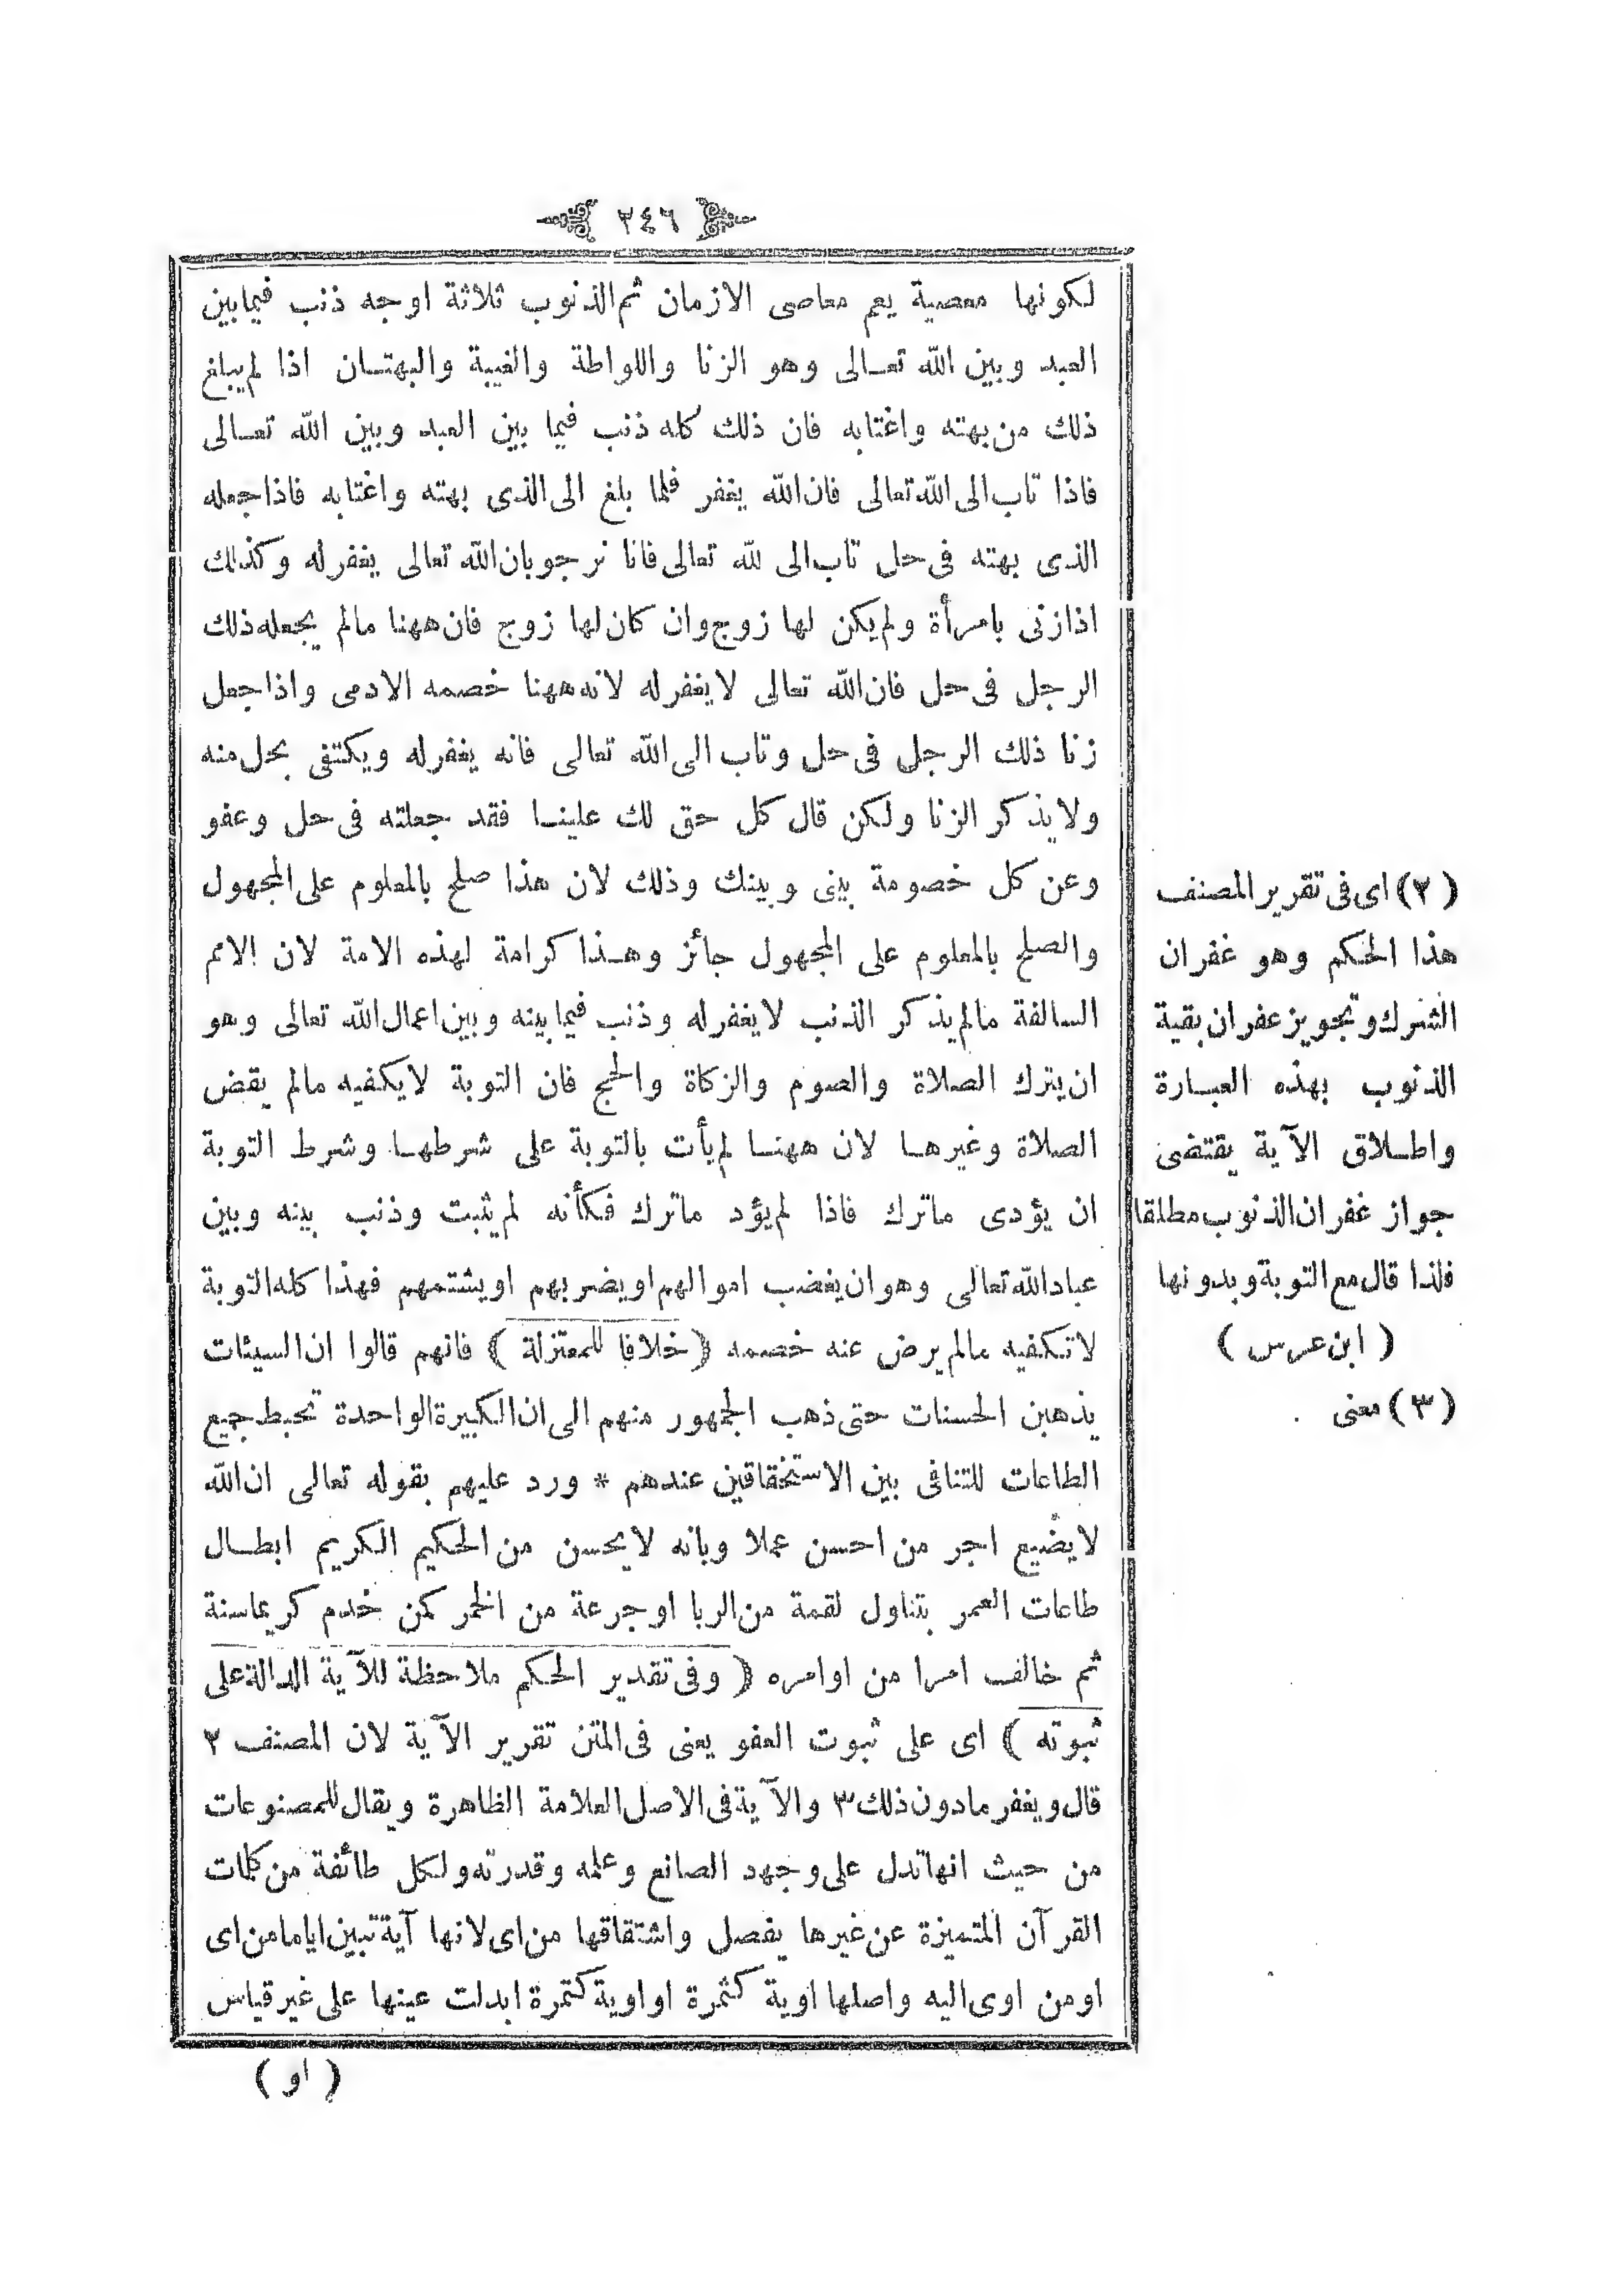 ٢٤٦
لكونها معصية يعم معاصى الازمان ثم الذنوب ثلاثة اوجه ذنب فيما بين
العبد وبين الله تعالى وهو الزنا واللواطة والغيبة والبهتان اذا لم يبلغ
ذلك من بهته واغتابه فان ذلك كله ذنب فيما بين العبد وبين الله تعالى
فاذا تاب الى الله تعالى فان الله يغفر فلما بلغ الى الذى بهته واغتابه فاذا جعله
الذى بهته فى حل تاب الى لله تعالى فانا نرجو بان الله تعالى يغفر له وكذلك
اذا زنى بامرأة ولم يكن لها زوج وان كان لها زوج فان ههنا مالم يجعله ذلك
الرجل فى حل فان الله تعالى لا يغفر له لانه ههنا خصمه الادمى واذا جعل
زنا ذلك الرجل فى حل وتاب الى الله تعالى فانه يغفر له ويكتفى بحل منه
ولا يذكر الزنا ولكن قال كل حق لك علينا فقد جعلته فى حل وعفو
وعن كل خصومة بينى وبينك وذلك لان هذا صلح بالمعلوم على المجهول
والصلح بالمعلوم على المجهول جائز وهذا كرامة لهذه الامة لان الامم
السالفة مالم يذكر الذنب لا يغفر له وذنب فيما بينه وبين اعمال الله تعالى وهو
ان يترك الصلاة والصوم والزكاة والحج فان التوبة لا يكفيه مالم يقض
الصلاة وغيرها لان ههنا لم يأت بالتوبة على شرطها وشرط التوبة
ان يؤدى ماترك فاذا لم يؤد ماترك فكأنه لم يثبت وذنب بينه وبين
عباد الله تعالى وهو ان يغضب اموالهم او يضربهم او يشتمهم فهذا كله التوبة
لا تكفيه مالم يرض عنه خصمه ﴿ خلافا للمعتزلة ﴾ فانهم قالوا ان السيئات
يذهبن الحسنات حتى ذهب الجمهور منهم الى ان الكبيرة الواحدة تحبط جميع
الطاعات للتنافى بين الاستحقاقين عندهم * ورد عليهم بقوله تعالى ان الله
لا يضيع اجر من احسن عملا وبانه لا يحسن من الحكيم الكريم ابطال
طاعات العمر بتناول لقمة من الربا او جرعة من الخمر كمن خدم كريما سنة
ثم خالف امرا من اوامره ﴿ وفى تقدير الحكم ملاحظة للآية الدالة على
ثبوته ﴾ اى على ثبوت العفو يعنى فى المتن تقرير الآية لان المصنف ٢
قال ويغفر مادون ذلك ٣ والآية فى الاصل العلامة الظاهرة ويقال للمصنوعات
من حيث انها تدل على وجهد الصانع وعلمه وقدرته ولكل طائفة من كلمات
القرآن المتميزة عن غيرها بفصل واشتقاقها من اى لانها آية تبين اياما من اى
او من اوى اليه واصلها اوية كثمرة او اوية كتمرة ابدلت عينها على غير قياس
( او )
( ٢ ) اى فى تقرير المصنف
هذا الحكم وهو غفران
الشرك وتجويز عفران بقية
الذنوب بهذه العبارة
واطلاق الآية يقتضى
جواز غفران الذنوب مطلقا
فلذا قال مع التوبة وبدونها
( ابن عرس )
( ٣ ) معنى